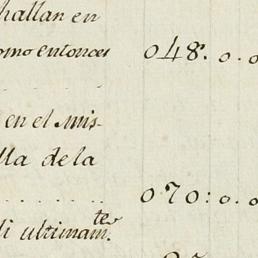 hallan en
omo entonces 048. 0. 0
en el mis-
lla de la
. . . . . . . . 070: 0. 0
di ultimam.te